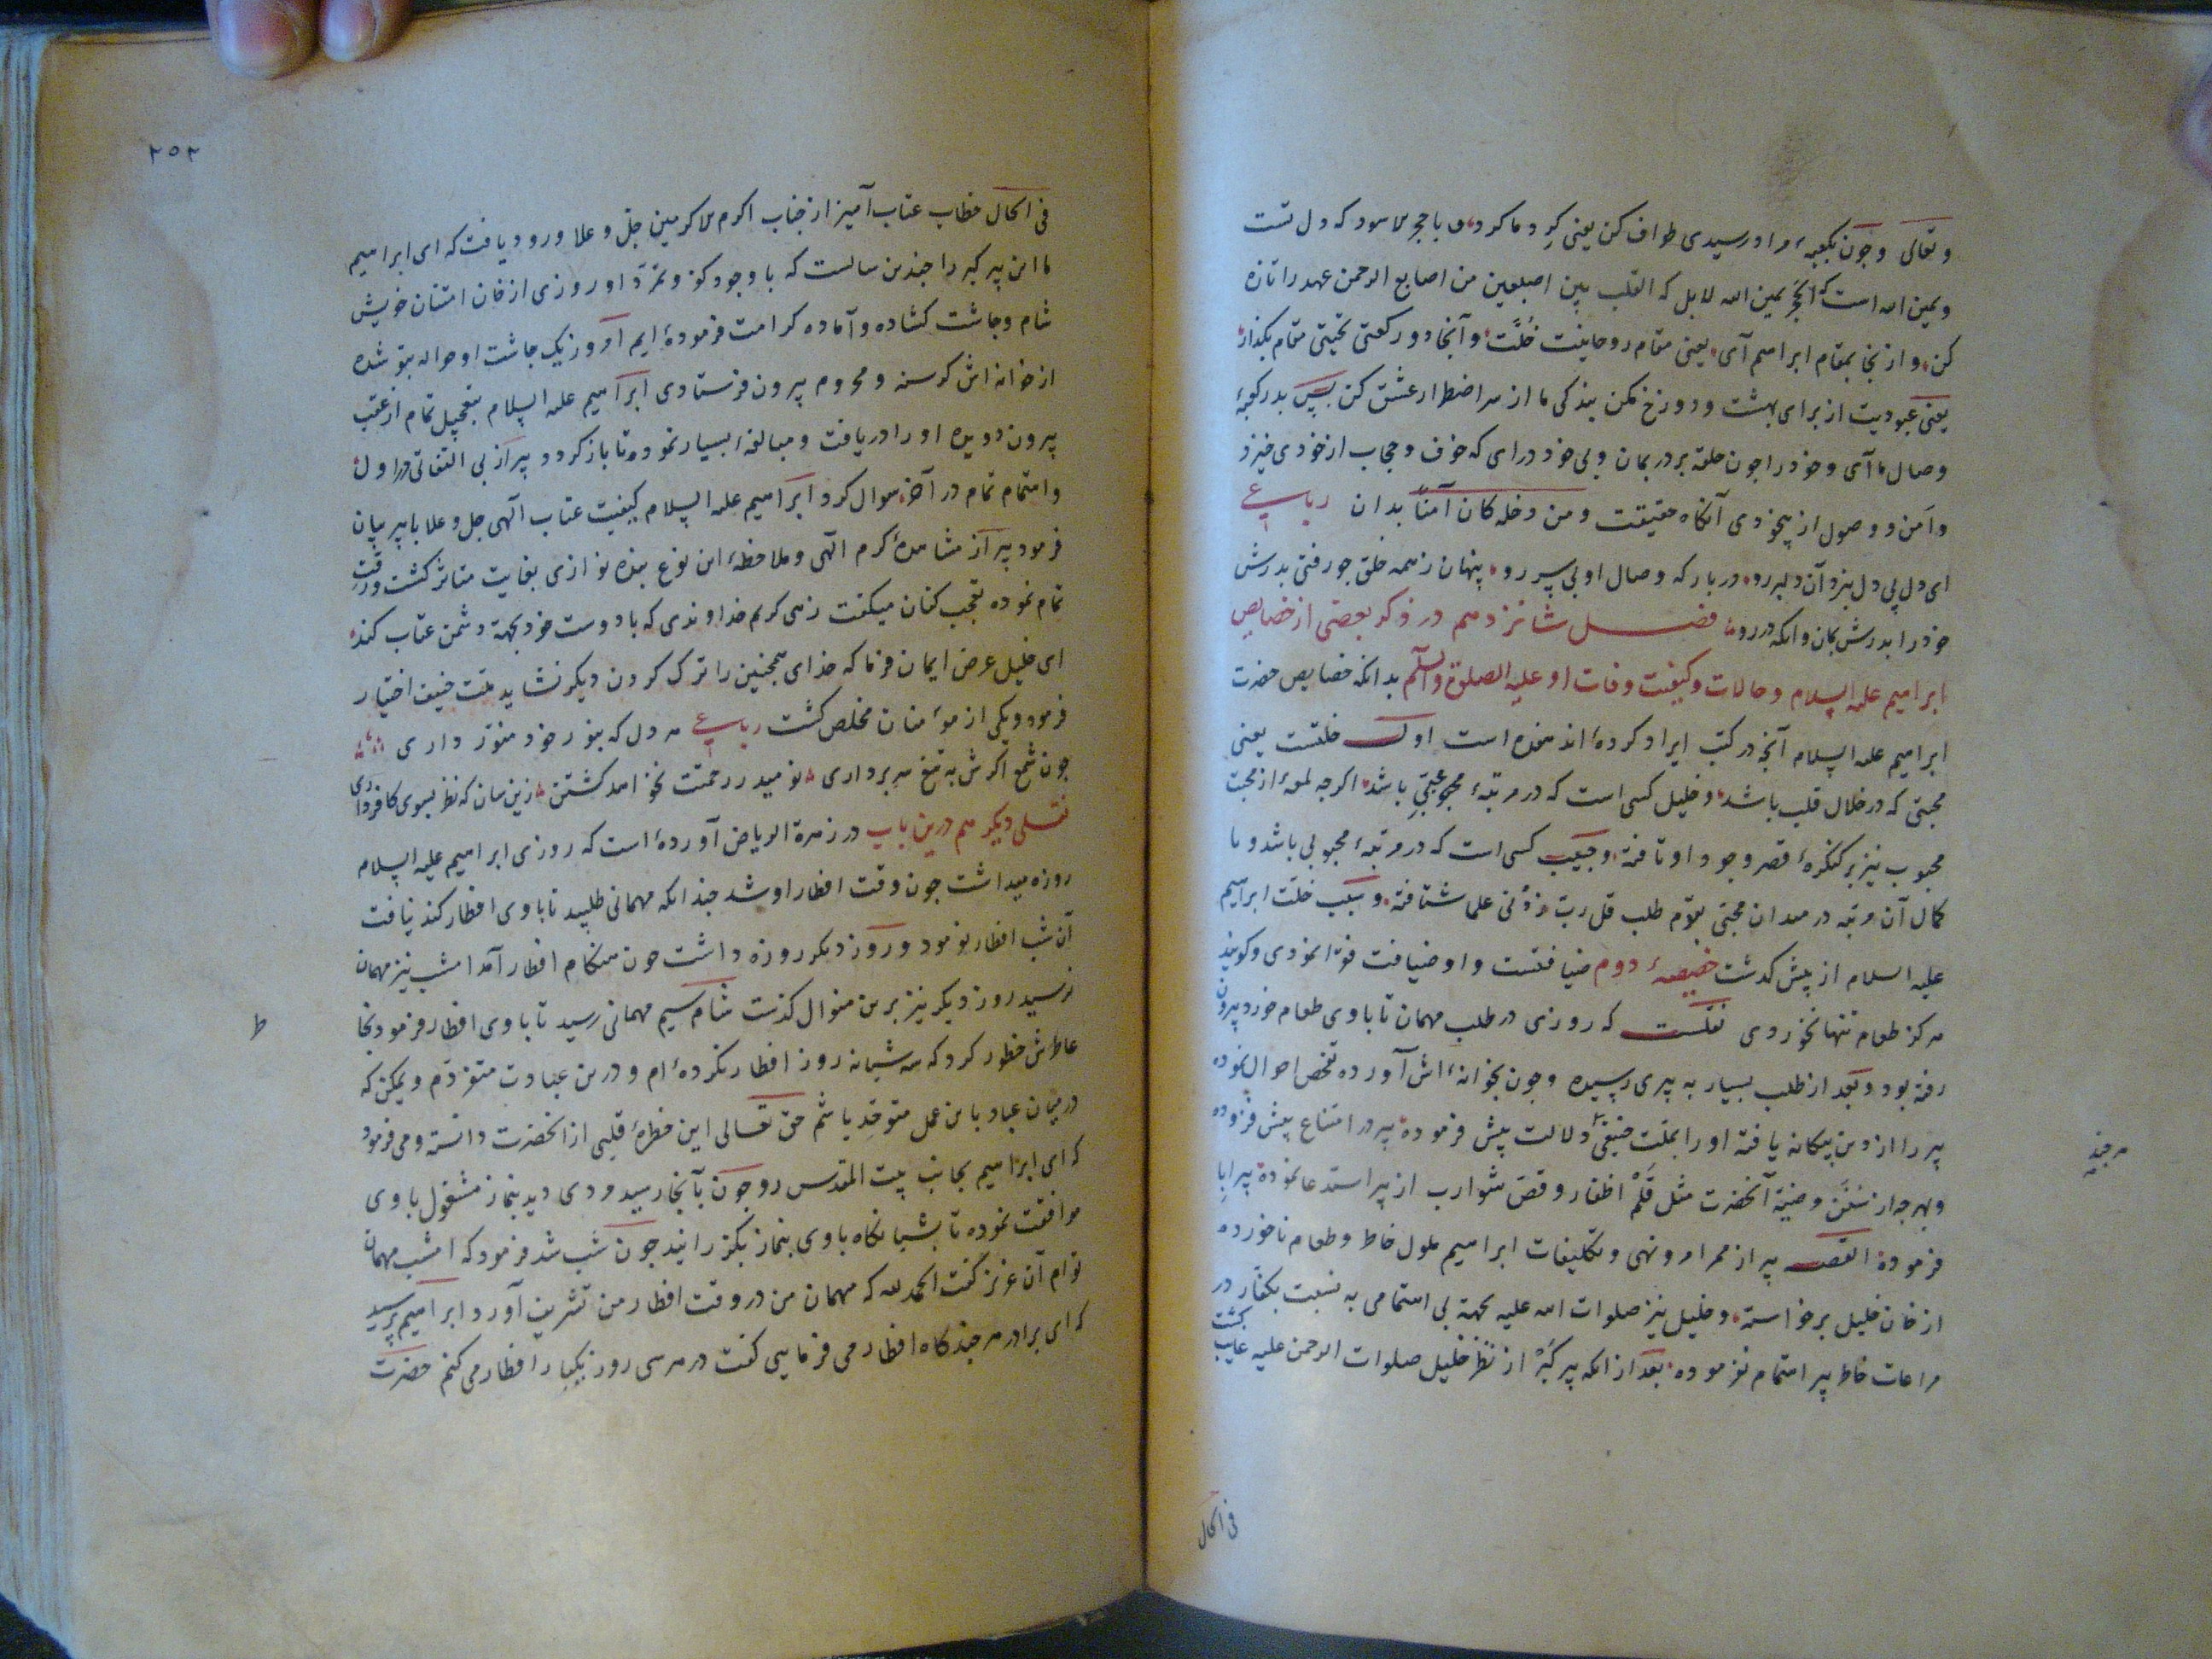 و تعالی وچون بکعبهٔ مراد رسیدی طواف کن یعنی گِرد ما کرد و با حجر الاسود که دل تست
و یمین الله است که الحجر یمین الله لا بل که القلب بین اصبعین من اصابع الرحمن عهد را تازه
کن و از بنجا بمقام ابراهیم آی یعنی مقام روحانیت خُلّت و آنجا دو رکعتی تحیّتی مقام بکذار
یعنی عبودیت از برای بهشت و دوزخ مکن بندکی ما از سر اضطرار عشق کن پس بدر کعبهٔ
وصال ما آی و خود را چون حلقه بر در بمان و بی خود درای که خوف و حجاب از خودی خیزد
و اَمن و وصول از بیخودی آنکاه حقیقت و من دخله کان آمناً بدان رباعی
ای دل پی دل بنزد آن دلبر رو در بارکه وصال او بی سر رو پنهان ز همه خلق چو رفتی بدرش
خود را بدرش بمان وانکه در رو فصل شانزدهم در ذکر بعضی از خصایص
ابراهیم علیه السلام و حالات و کیفیت وفات او علیه الصلوة والسلام بدانکه خصایص حضرت
ابراهیم علیه السلام آنچه در کتب ایراد کردهٔ اند هجده است اول خلتست یعنی
محبتی که در خلال قلب باشد و خلیل کسی است که در مرتبهٔ محبی باشد اکرچه لمعهٔ از محبت
محبوب نیز بر کنکرهٔ قصر وجود او تافته و حبیب کسی است که در مرتبهٔ محبوبی باشد و با
کمال آن مرتبه در میدان محبتی بقدم طلب قل ربّ زدنی علما شتافته و سبب خلّت ابراهیم
علیه السلام از پیش کذشت خصیصهٔ دوم ضیافتست و او ضیافت فوق نمودی و کویند
هرکز طعام تنها نخوردی نقلست که روزی در طلب مهمان تا باوی طعام خورد بیرون
رفته بود و بعد از طلب بسیار به پیری رسیده و چون بخوانهٔ اش آورده تفحص احوال نموده
پیر را از دین بیکانه یافته او را بملت حنیفی دلالت پیش فرموده پیر در امتناع پیش فزوده
و بهرچه از سُنَن آنحضرت مثل قَلْم اظفار و قصّ شوارب از پیر استدعا نموده پیر ابا
فرموده القصه پیر از ممر امر و نهی و تکلیفات ابراهیم ملول خاطر و طعام ناخورده
از خان خلیل برخواسته و خلیل نیز صلوات الله علیه بجهة بی اهتمامی به نسبت بکفار در
مراعات خاطر پیر اهتمام نفرموده بعد از انکه پیر کَبْر از نظر خلیل صلوات الرحمن علیه غایب کشت
هر چند
فی الحال
۲۵۲
فی الحال خطاب عتاب آمیز از جناب اکرم الاکرمین جلّ و علا ورود یافت که ای ابراهیم
ما این پیر کبر را چندین سالست که با وجود کفر و تمرّد او روزی از خان امتنان خویش
شام و چاشت کشاده و آماده کرامت فرمودهٔ ایم امروز یک چاشت او حواله بتو شده
از خوانه اش کرسنه و محروم بیرون فرستادی ابراهیم علیه السلام بتعجیل تمام از عقب
بیرون دویده او را دریافت و مبالغهٔ بسیار نموده تا باز کردد پیر از بی التفاتی در اول
و اهتمام تمام در آخر سوال کرد ابراهیم علیه السلام کیفیت عتاب الهی جل و علا با پیر بیان
فرمود پیر از مشاهدهٔ کرم الهی و ملاحظهٔ این نوع بنده نوازی بغایت متاثر کشت و رقتِ
تمام نموده تعجب کنان میکفت زهی کریم خداوندی که با دوست خود بجهة دشمن عتاب کند
ای خلیل عرض ایمان فرما که خدای همچنین را ترک کردن دیکر نشاید ملت حنیف اختیار
فرمود ویکی از موٴمنان مخلص کشت رباعی هر دل که بنور خود منوّر داری
چون شمع اکرش به تیغ سر برداری نومید ز رحمتت نخواهد کشتن زین سان که نظر بسوی کافر داری
نقلی دیکر هم درین باب در زهرة الریاض آوردهٔ است که روزی ابراهیم علیه السلام
روزه میداشت چون وقت افطار او شد چندانکه مهمانی طلبید تا باوی افطار کند نیافت
آن شب افطار نفرمود و روز دیکر روزه داشت چون هنکام افطار آمد امشب نیز مهمان
نرسید روز دیکر نیز برین منوال کذشت شام سیم مهمانی رسید تا باوی افطار فرمود بخا
طرش خطور کرد که سه شبانه روز افطار نکردهٔ ام و درین عبادت متفردّم و یمکن که
در میان عباد باین عمل متوحّد باشم حق تعالی این خطرهٔ قلبی از انحضرت دانسته وحی فرمود
که ای ابراهیم بجانب بیت المقدس رو چون بآنجا رسید مردی دید بنماز مشغول باوی
موافقت نموده تا بشبانکاه باوی بنماز بکذرانید چون شب شد فرمود که امشب مهمان
توام آن عزیز کفت الحمد لله که مهمان من در وقت افطار من تشریف آورد ابراهیم پرسید
که ای برادر هر چند کاه افطار می فرمایی کفت در هر سی روز یکبار افطار می کنم حضرت
ط